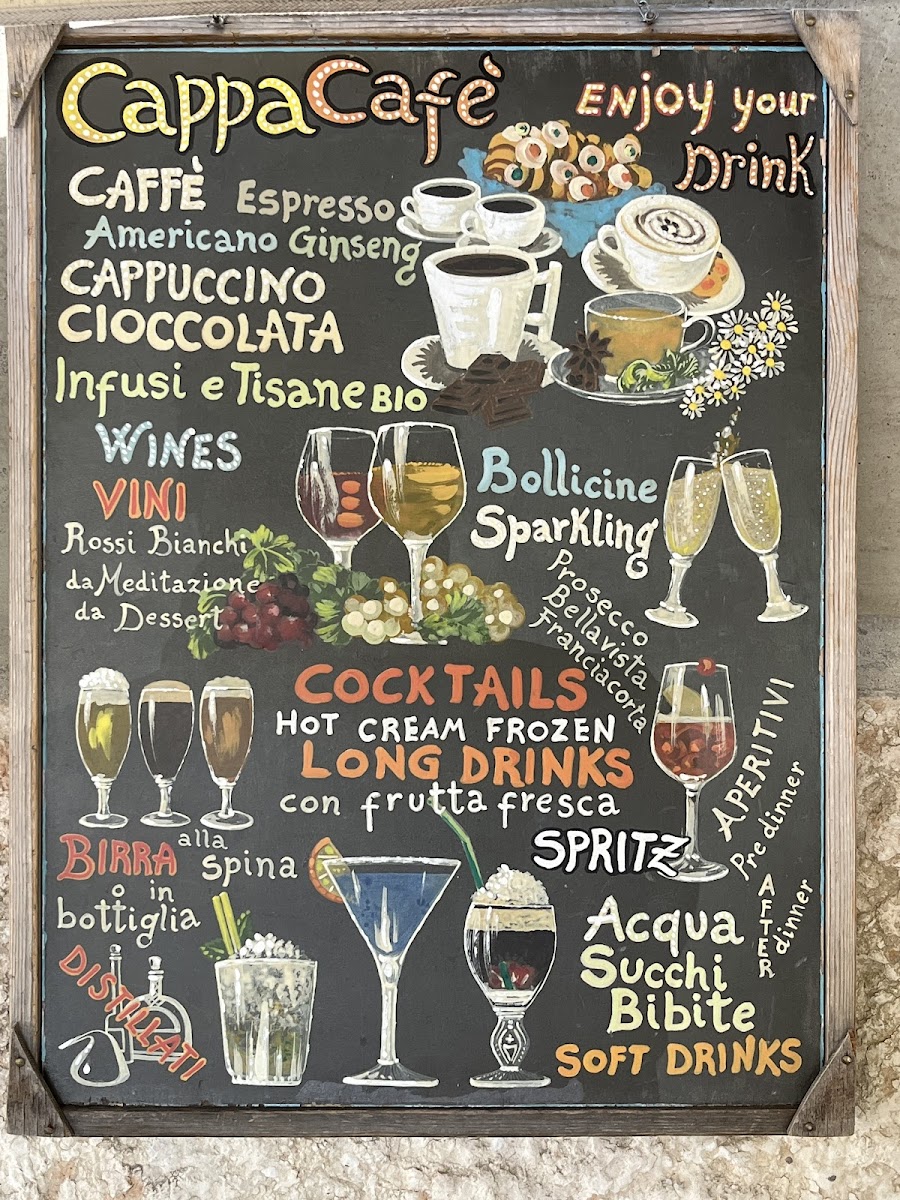 CappaCafè
ENJOY your
DrinK
CAFFÈ Espresso
Americano Ginseng
CAPPUCCINO
CIOCCOLATA
Infusi e Tisane BIO
WINES
VINI
Rossi Bianchi
da Meditazione
da Dessert
Bollicine
Sparkling
Prosecco
Bellavista
Franciacorta
COCKTAILS
HOT CREAM FROZEN
LONG DRINKS
con frutta fresca
SPRITZ
APERITIVI
Predinner
AFTER
dinner
BIRRA alla spina
o in
bottiglia
DISTILLATI
Acqua
Succhi
Bibite
SOFT DRINKS